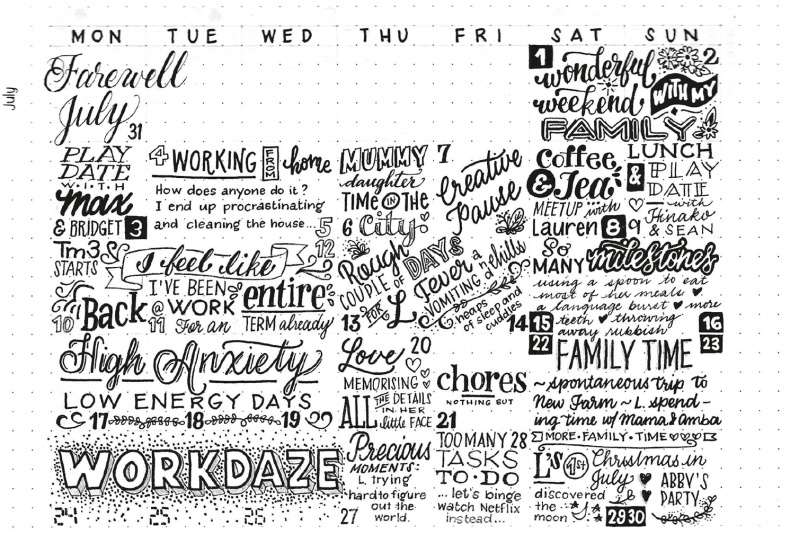 July
MON TUE WED THU FRI SAT SUN
Farewell
July
31
1
wonderful
weekend
2
WITH MY
FAMILY
PLAY
DATE
WITH
max
& BRIDGET 3
4 WORKING FROM home
How does anyone do it?
I end up procrastinating
and cleaning the house... 5
MUMMY
daughter
TIME IN THE
6 City
7
Creative
Pause
Coffee
& Tea
MEETUP with
Lauren 8
LUNCH
& PLAY
DATE
with
Hinako
9 & SEAN
Tm3
STARTS
10 Back
I feel like 12
I'VE BEEN
@ WORK entire
11 For an TERM already
Rough
COUPLE OF DAYS
FOR L
13
Fever & chills
VOMITING &
heaps
of sleep and
cuddles
14
So
MANY milestones
using a spoon to eat
most of her meals
a language burst more
teeth throwing
away rubbish
15 16
High Anxiety
LOW ENERGY DAYS
17 18 19
Love 20
MEMORISING
ALL THE DETAILS
IN HER
little FACE
chores
NOTHING BUT
21
22 23
FAMILY TIME
~spontaneous trip to
New Farm ~ L. spend-
ing time w/ Mama & Amba
MORE FAMILY TIME
WORKDAZE
24 25 26
Precious
MOMENTS:
L. trying
hard to figure
out the
world.
27
TOO MANY 28
TASKS
TO·DO
...let's binge
watch Netflix
instead...
L's 1st Christmas in
July
discovered
the
moon
29 30
ABBY'S
PARTY